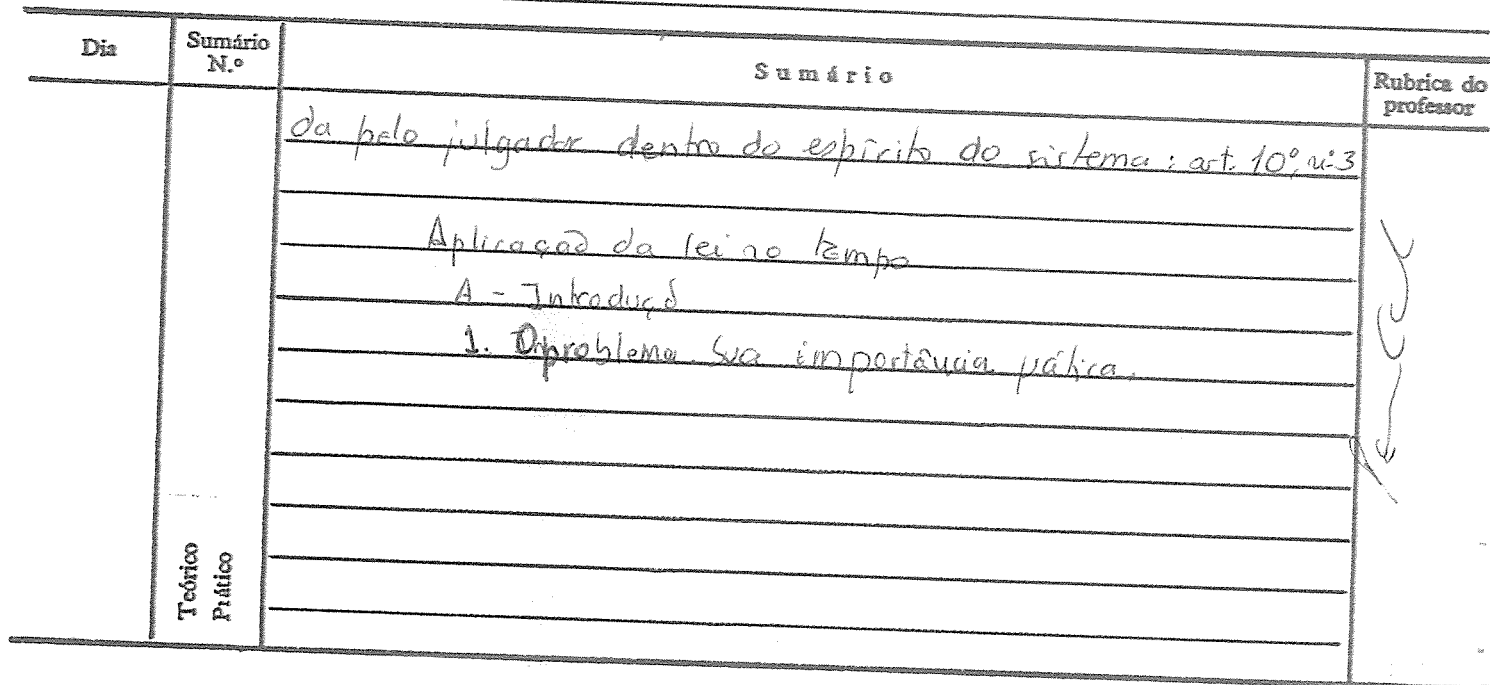 Dia
Sumário N.º
Sumário
Rubrica do professor
da pelo julgador dentro do espírito do sistema: art. 10º, nº 3
Aplicação da lei no tempo
A - Introduçõ
1. O problema. Sua importância prática.
Teórico
Prático